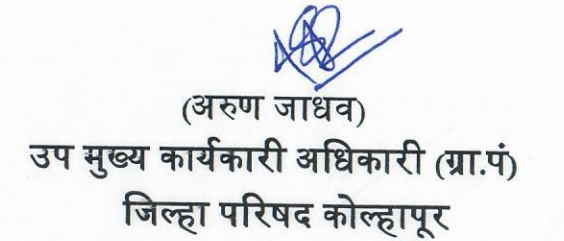 (अरुण जाधव)
उप मुख्य कार्यकारी अधिकारी (ग्रा.पं)
जिल्हा परिषद कोल्हापूर